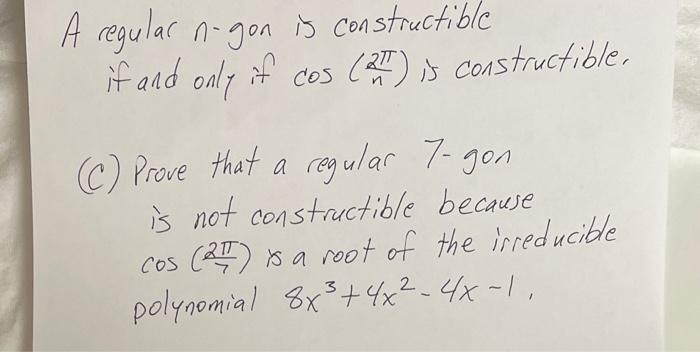 A regular n-gon is constructible
if and only if cos (2π/n) is constructible.
(C) Prove that a regular 7-gon
is not constructible because
cos (2π/7) is a root of the irreducible
polynomial 8x³+4x²-4x-1.